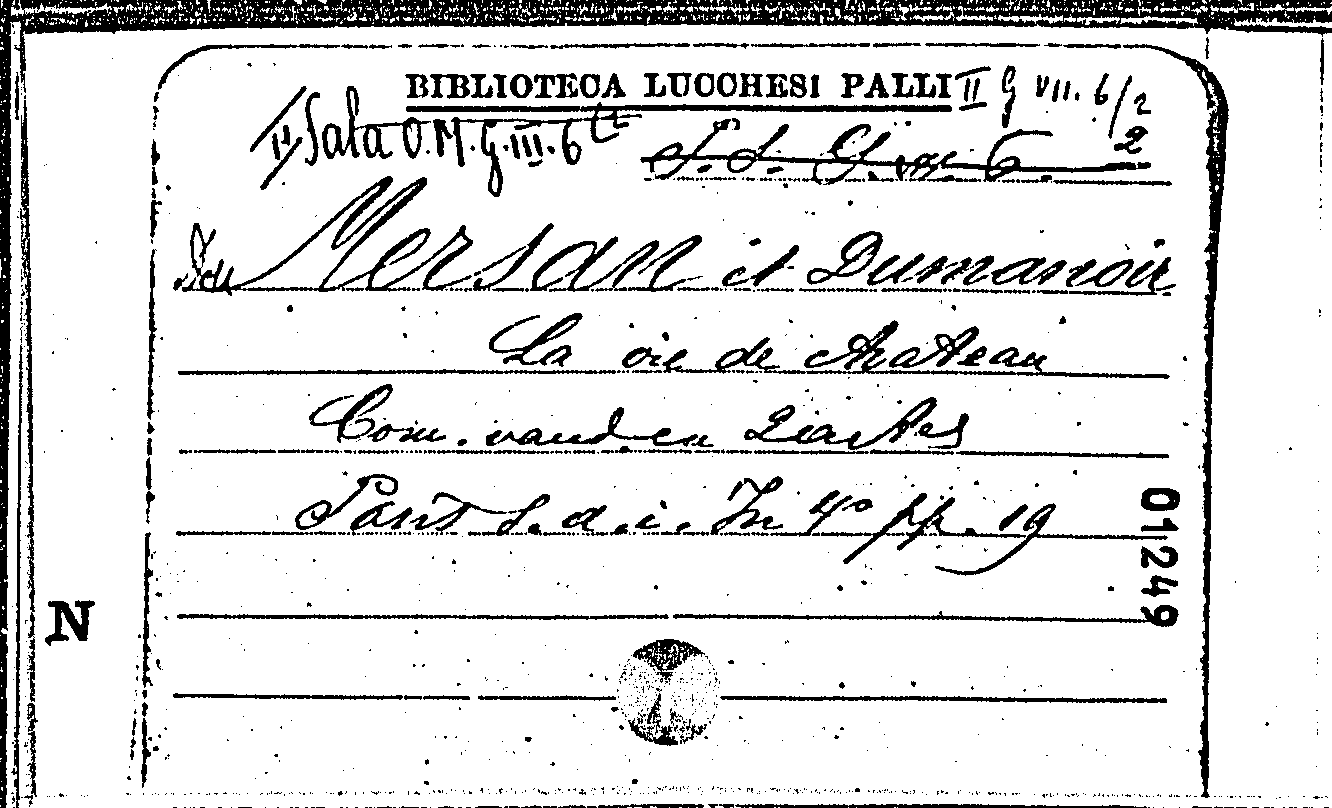 BIBLIOTECA LUCCHESI PALLI II G VII. 6/2
II Sala O.M.G.III.6
2
Du Mersan et Dumanoir
La vie de chateau
Com. vaud. en 2 actes
Paris S. d. i. In 4° pp. 19
01249
N